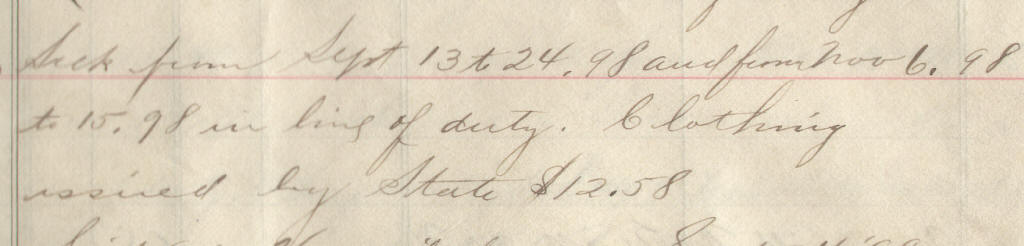 Sick from Sept 13 to 24. 98 and from Nov 6. 98
to 15. 98 in line of duty. Clothing
issued by State $12.58